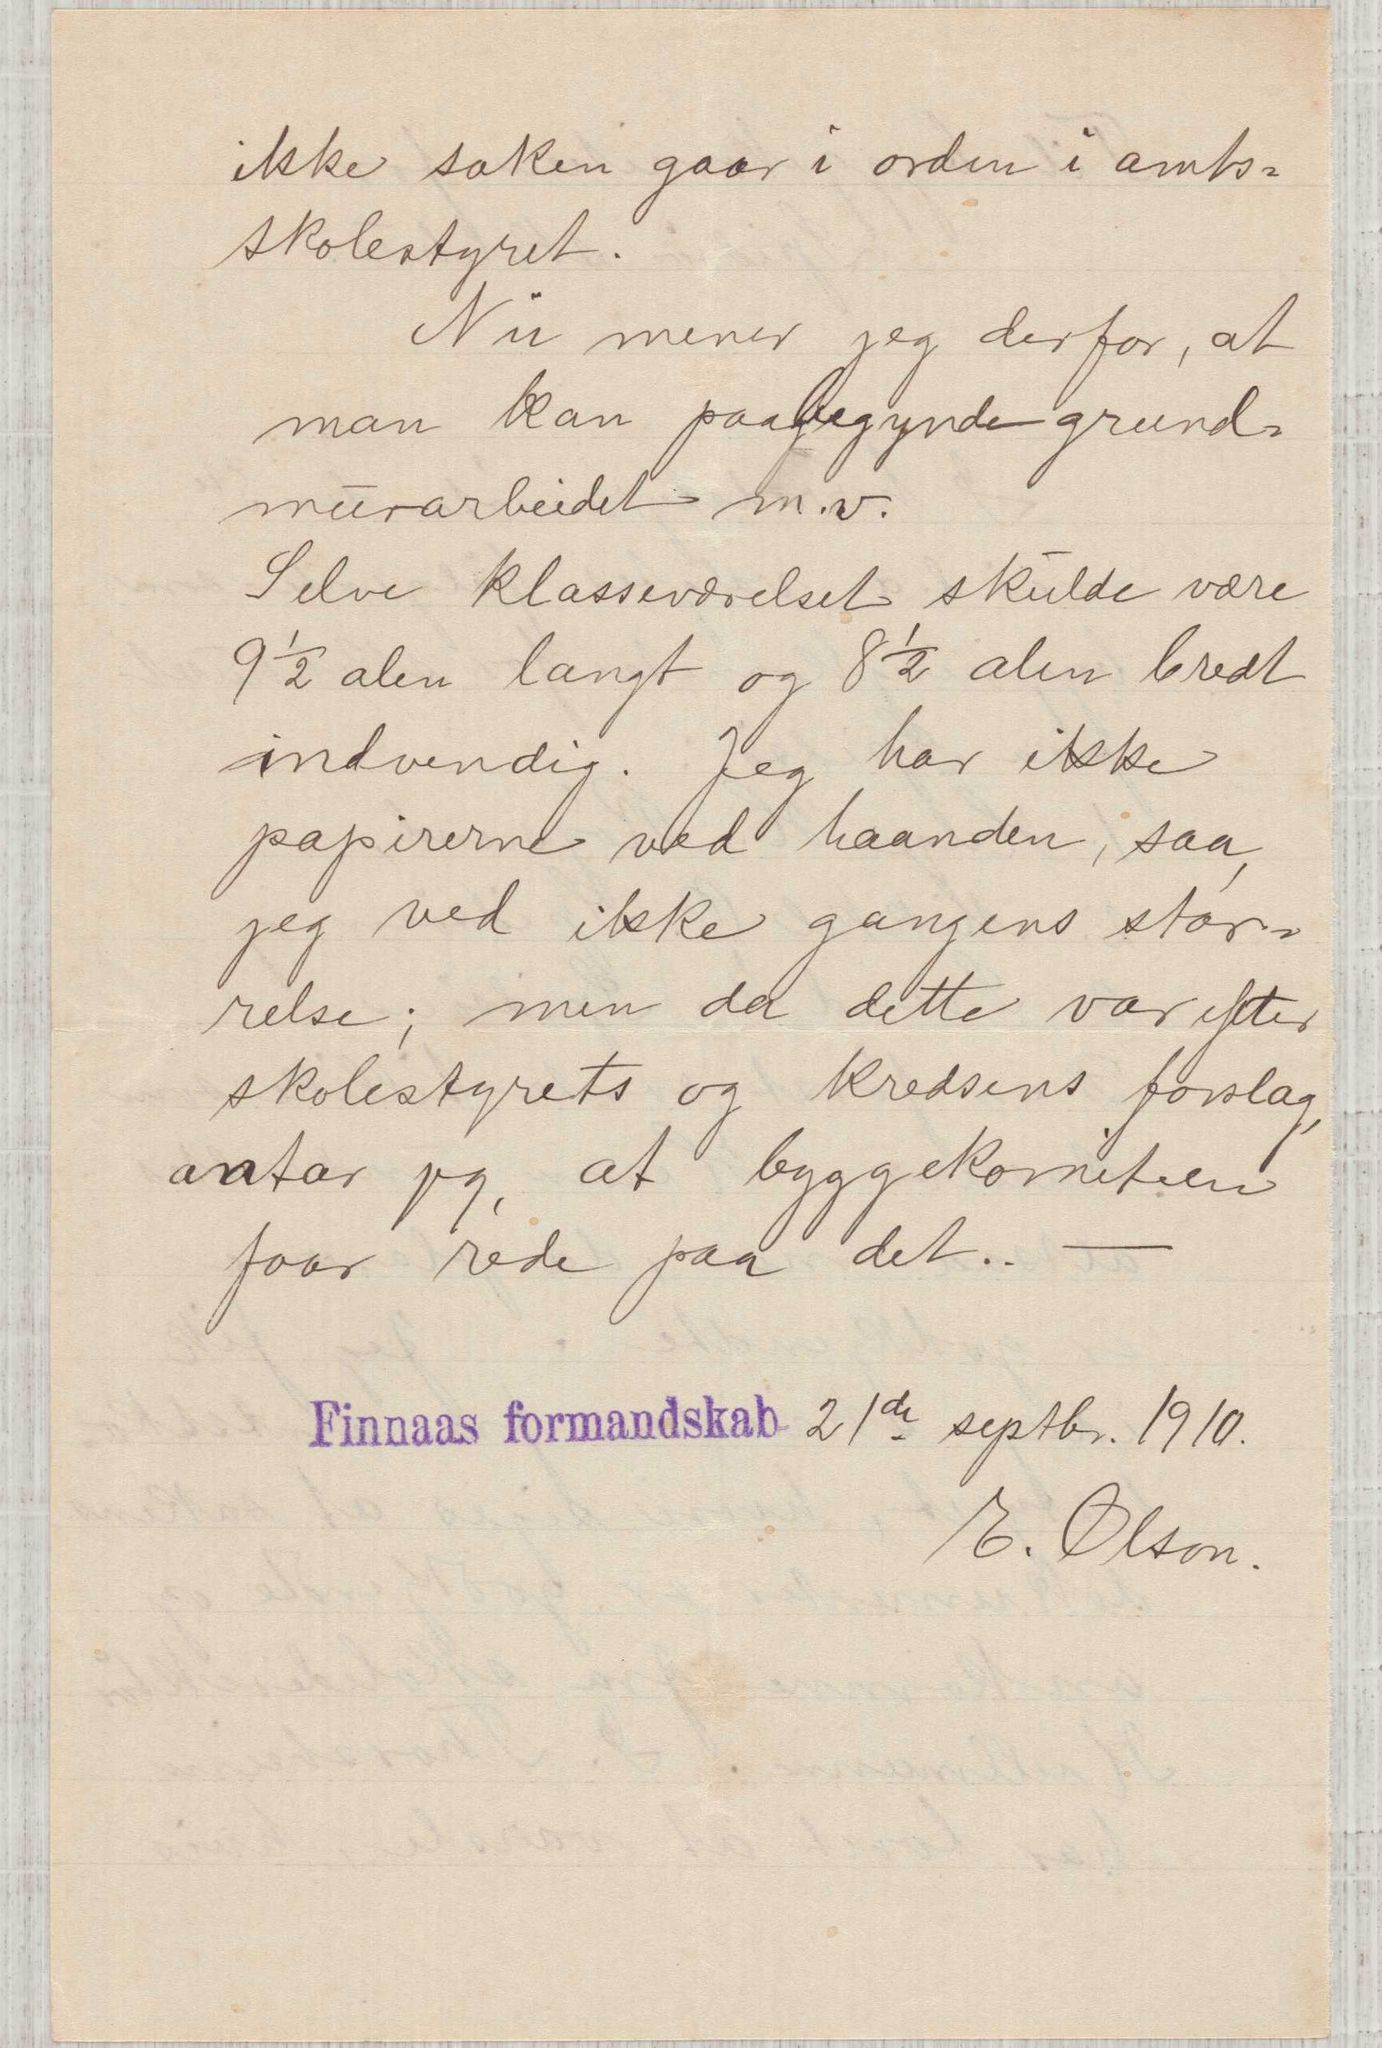 ikke saken gaar i orden i amts-
skolestyret.
Nu mener jeg derfor, at
man kan paabegynde grund-
murarbeidet m.v.
Selve klasseværelset skulde være
9½ alen langt og 8½ alen bredt
indvendig. Jeg har ikke
papirerne ved haanden, saa
jeg ved ikke gangens stør-
relse; men da dette var efter
skolestyrets og kredsens forslag,
antar jeg, at byggekomiteen
faar rede paa det.. —
Finnaas formandskab 21de septbr. 1910.
E. Olson.